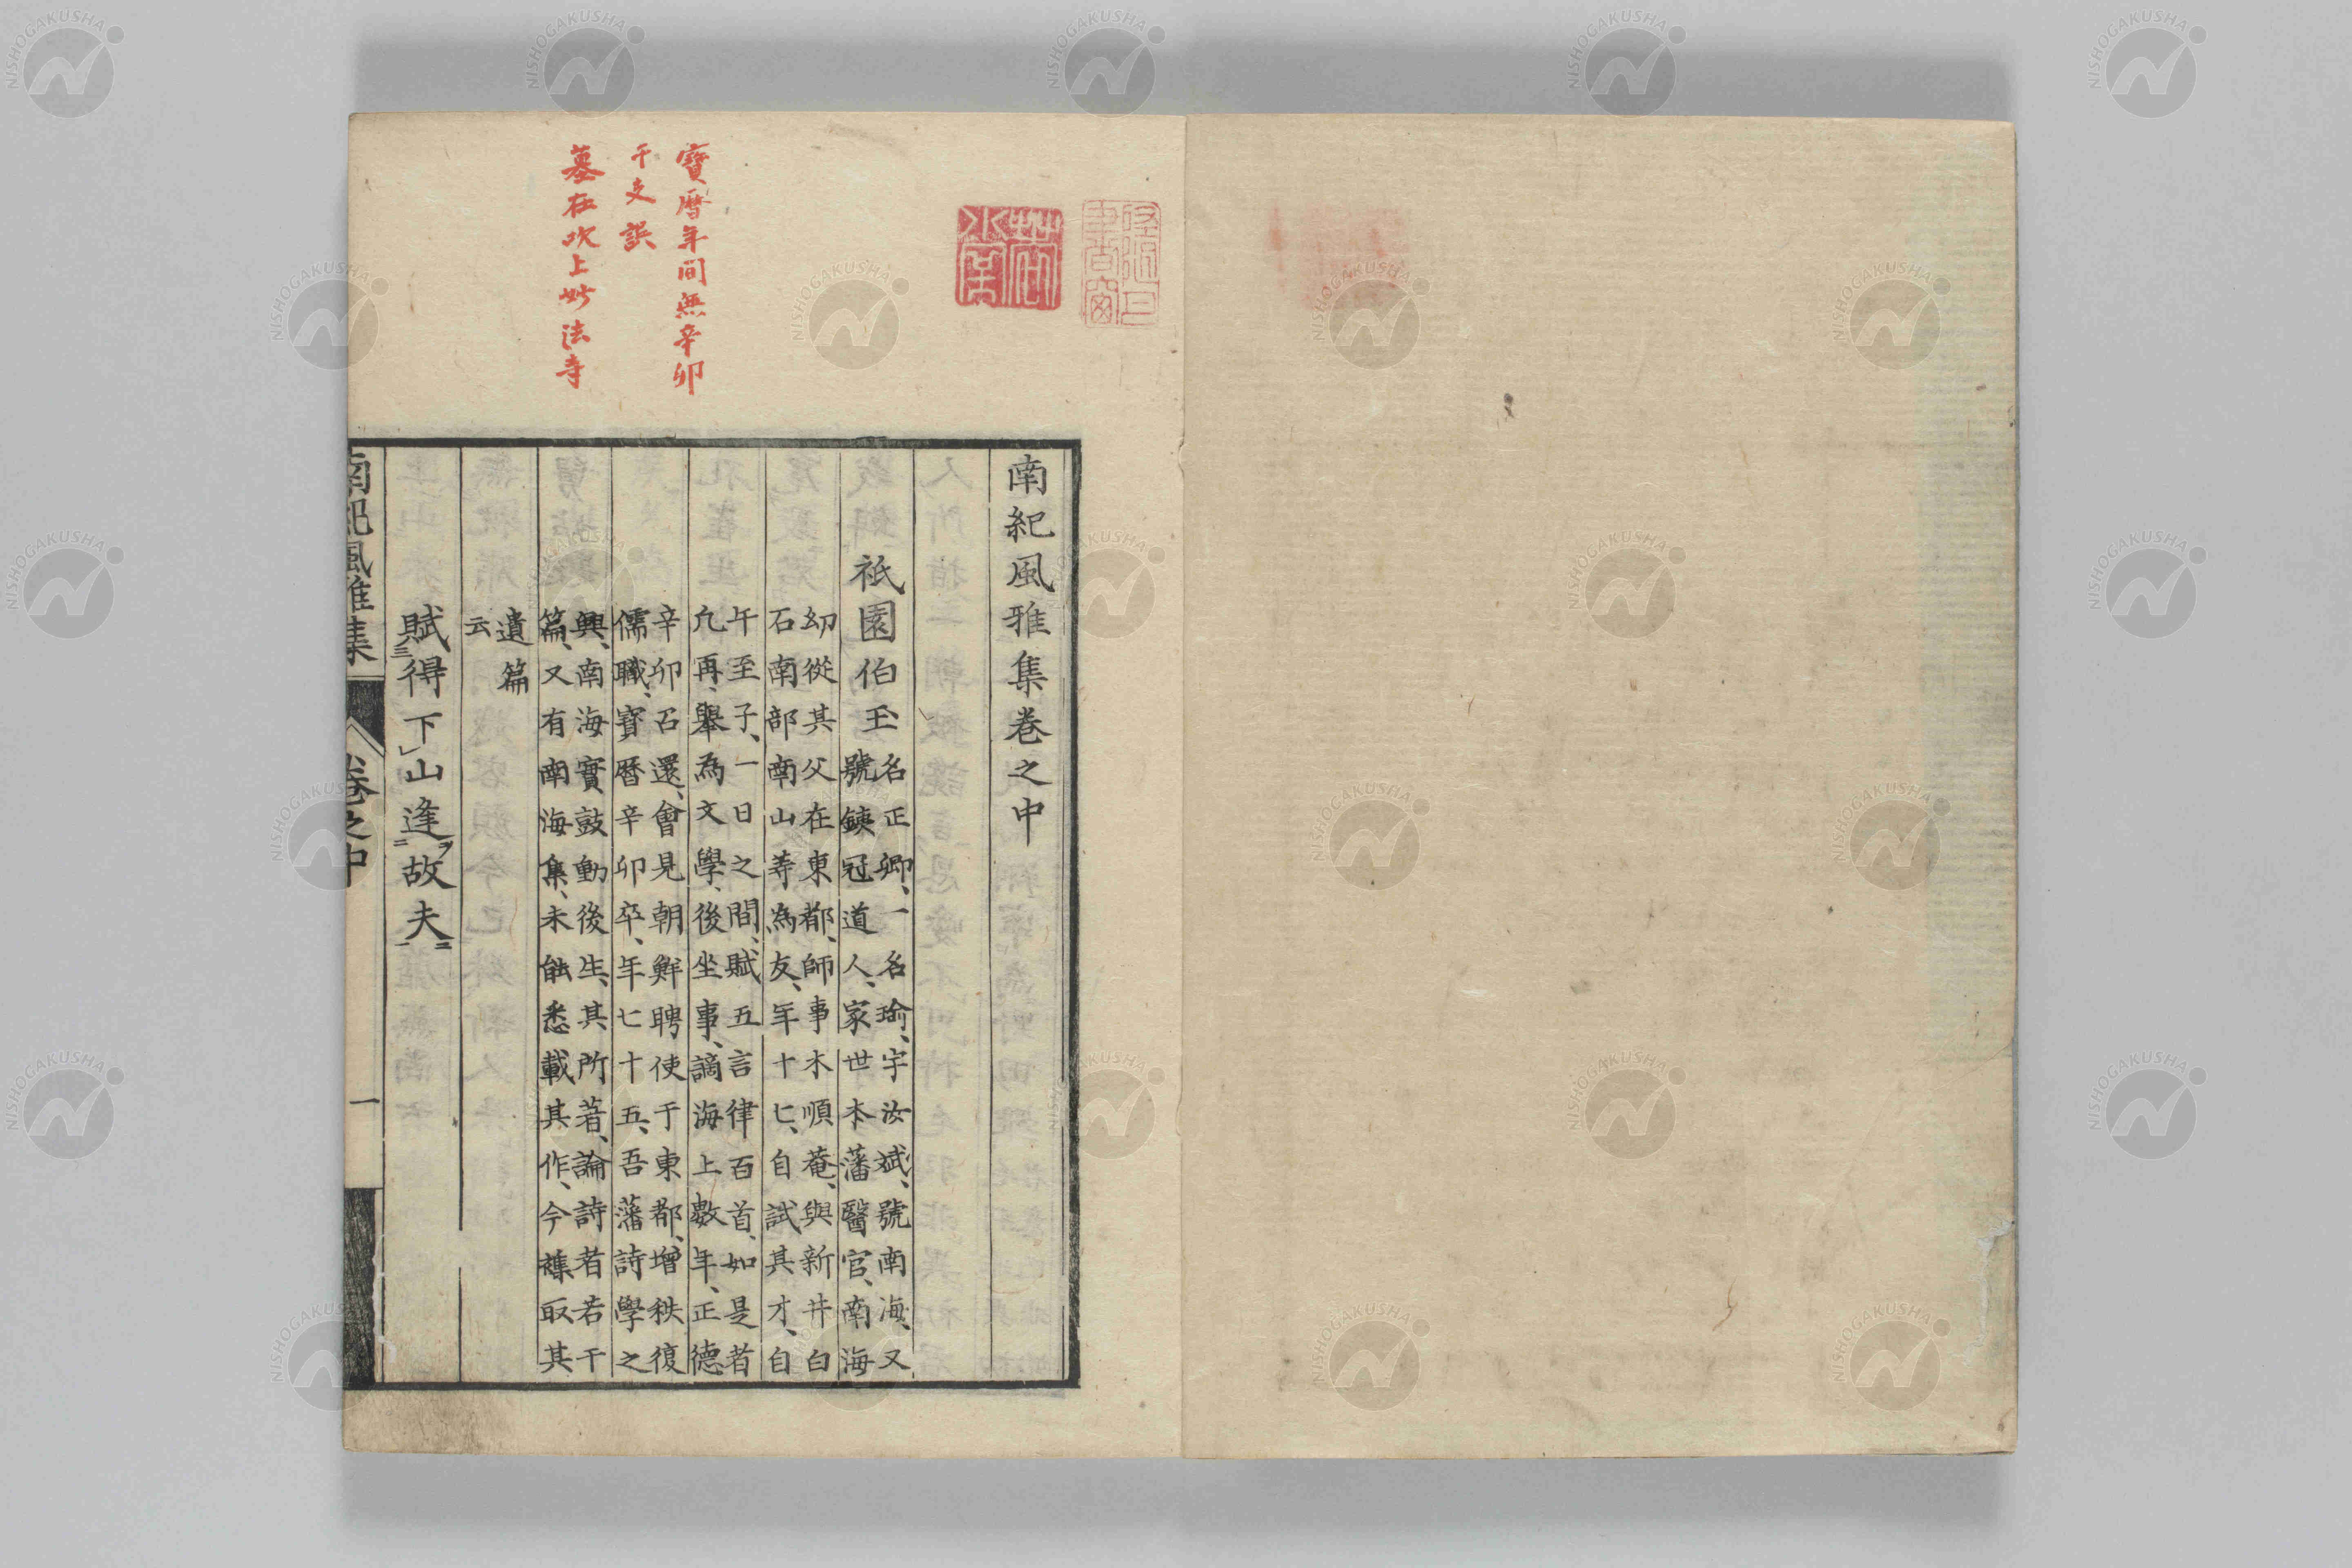 寶暦年间無辛卯
干支誤
墓在吹上妙法寺
南紀風雅集卷之中
祇園伯玉
名正卿、一名瑜、字汝斌、號南海、又
號鐵冠道人、家世本藩醫官、南海
幼從其父在東都、師事木順菴、與新井白
石南部南山等為友、年十七、自試其才、自
午至子、一日之間、賦五言律百首、如是者
凢再、舉為文學、後坐事、謫海上數年、正德
辛卯召還、會見朝鮮聘使于東都、增秩復
儒職、寶暦辛卯卒、年七十五、吾藩詩學之
興、南海實鼓動後生、其所著、論詩者若干
篇、又有南海集、未能悉載其作、今襍取其
遺篇
云
賦得下山逢故夫
南紀風雅集
卷之中
一
NISHOGAKUSHA